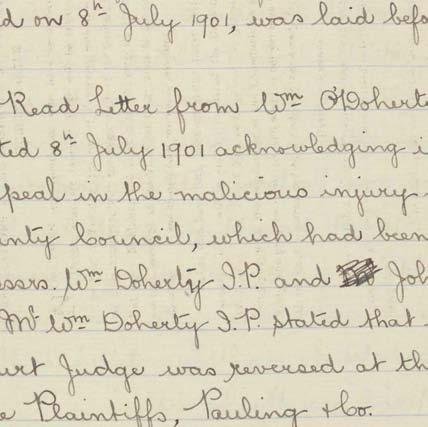 d on 8th July 1901, was laid befo
Read Letter from Wm O'Doherte
ted 8th July 1901 acknowledging i
peal in the malicious injury
unty Council, which had been
essrs. Wm Doherty J.P. and Joh
Mr Wm Doherty J.P. stated that
urt Judge was reversed at th
e Plaintiffs, Pauling & Co.